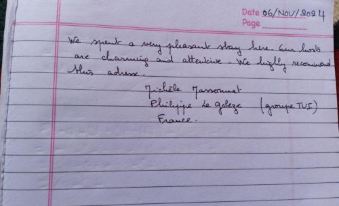 Date 06/Nov/2024
Page
We spent a very pleasant stay here. Our hosts
are charming and attentive. We highly recommend
this adress.
Michèle Massonnet
Philippe Le (groupe TUI)
France.